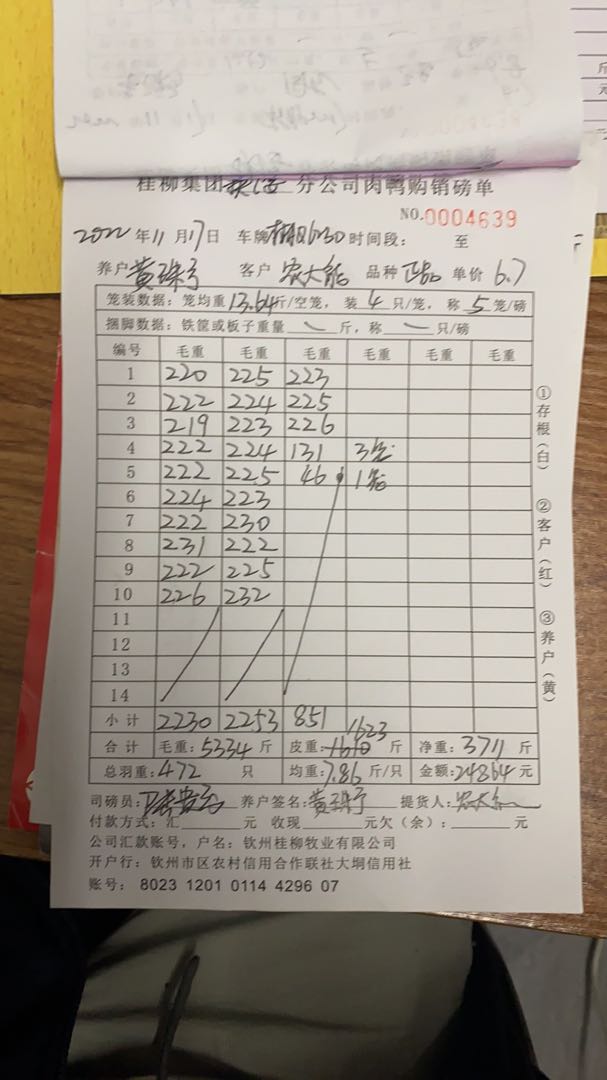 桂柳集团 分公司肉鸭购销磅单
NO.0004639
2022年11月17日 车牌 6230 时间段： 至
养户 黄 客户 农大 品种 正品 单价 6.7
笼装数据：笼均重13.64斤/空笼，装4只/笼，称5笼/磅
捆脚数据：铁筐或板子重量 — 斤，称 — 只/磅
编号 毛重 毛重 毛重 毛重 毛重 毛重
1 220 225 223
2 222 224 225
3 219 223 226
4 222 224 131 3笼
5 222 225 46 1笼
6 224 223
7 222 230
8 231 222
9 222 225
10 226 232
11
12
13
14
小计 2230 2253 851
1623
合计 毛重：5334斤 皮重：1610斤 净重：3711斤
总羽重：472只 均重：7.86斤/只 金额：24864元
司磅员： 养户签名：黄 提货人：农大
付款方式：汇 元 收现 元欠（余）： 元
公司汇款账号，户名：钦州桂柳牧业有限公司
开户行：钦州市区农村信用合作联社大垌信用社
账号： 8023 1201 0114 4296 07
①存根（白）
②客户（红）
③养户（黄）
斤
元